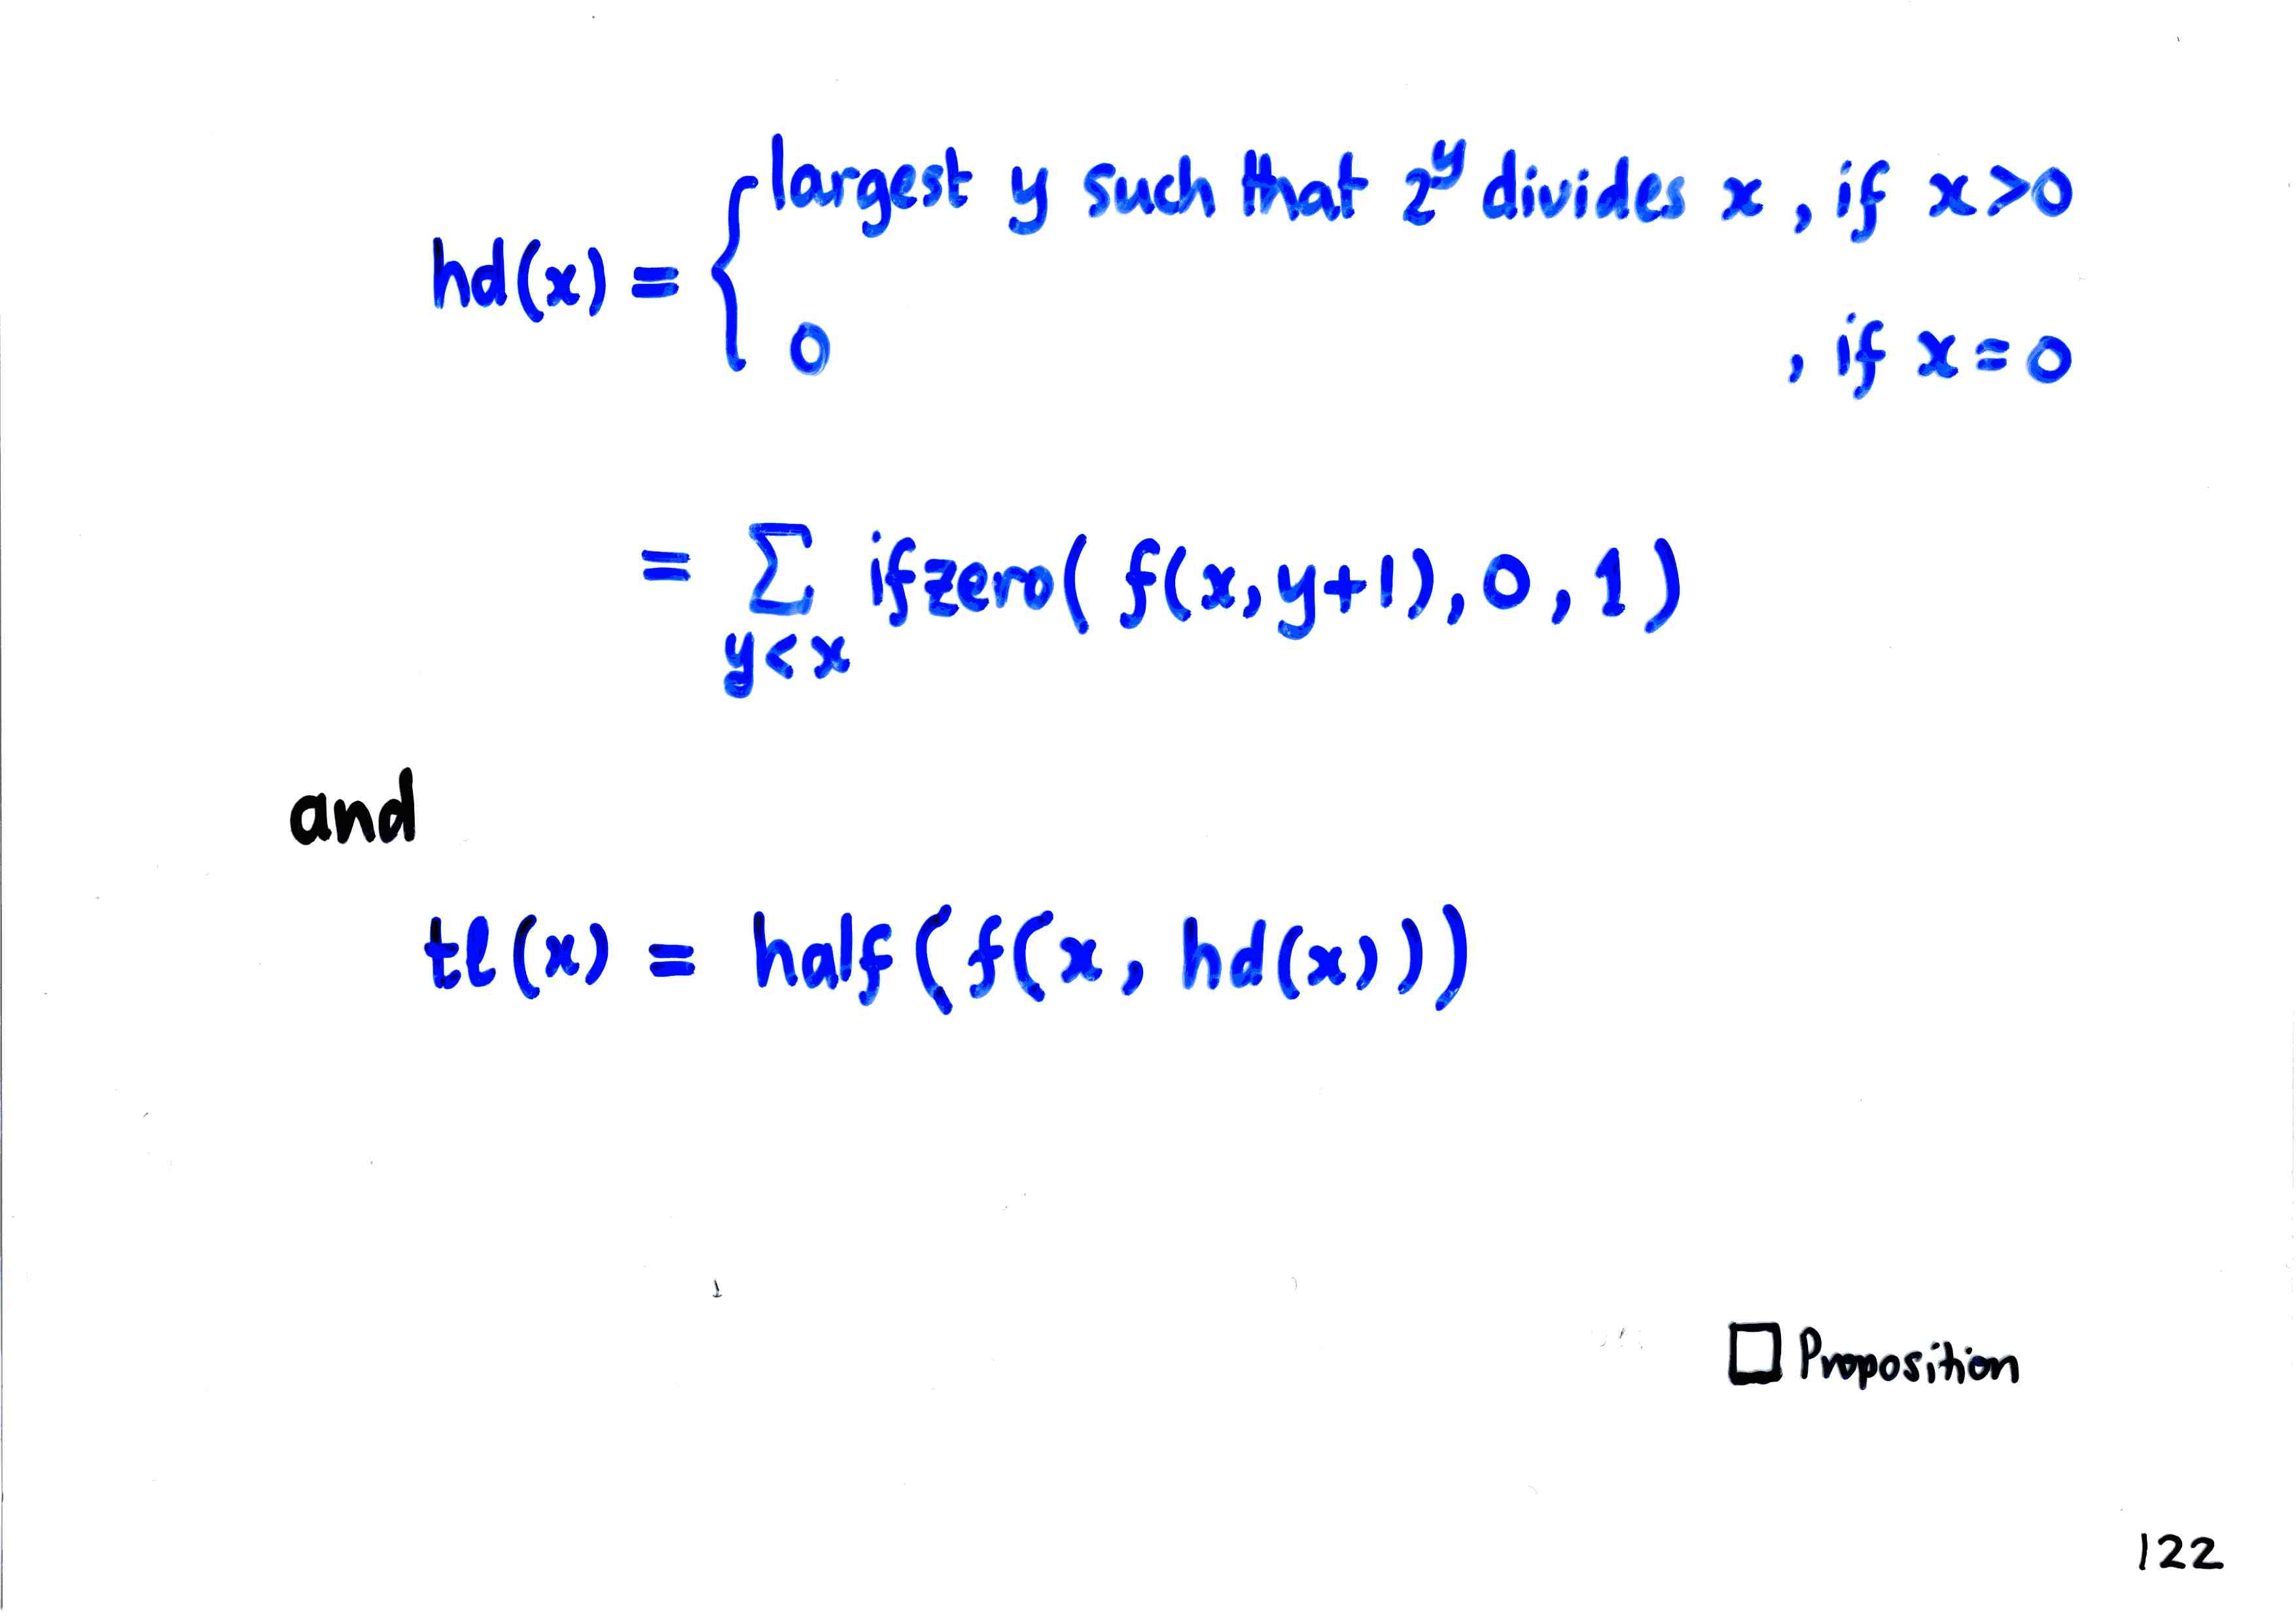 hd(x) = { largest y such that 2^y divides x , if x>0
0 , if x=0
= Σ_{y<x} ifzero( f(x,y+1), 0, 1 )
and
tl(x) = half ( f(x, hd(x)) )
□ Proposition
122